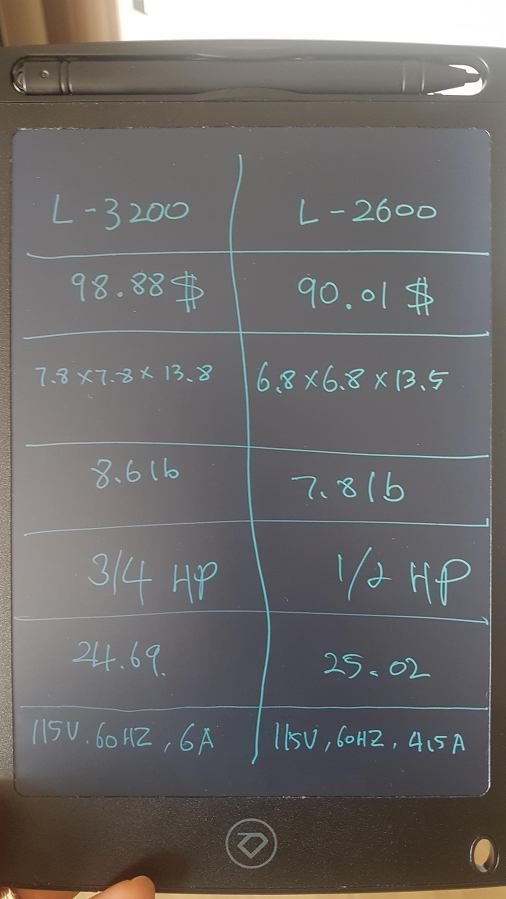 L-3200 L-2600
98.88$ 90.01$
7.8x7.8x13.8 6.8x6.8x13.5
8.6lb 7.8lb
3/4 HP 1/2 HP
24.69. 25.02
115V.60HZ,6A 115V,60HZ.4.5A